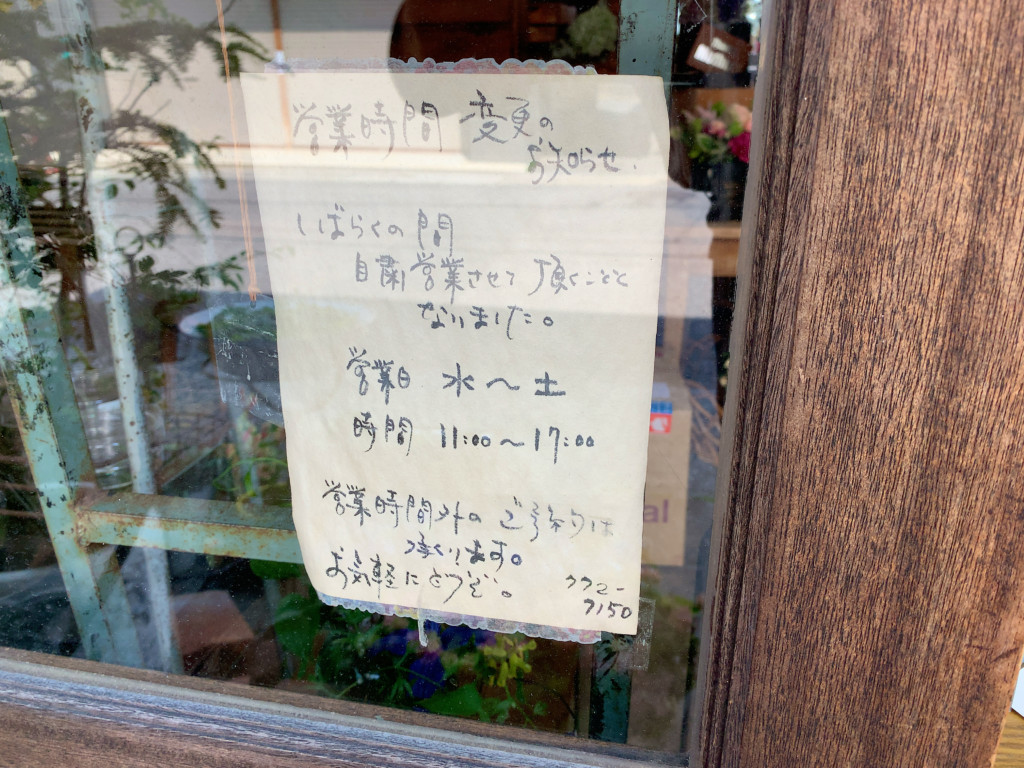 営業時間 変更の
お知らせ.
しばらくの間
自粛営業させて頂くことと
なりました。
営業日 水〜土
時間 11:00〜17:00
営業時間外の ご予約は
承ります。
お気軽にどうぞ。
772-
7150
al